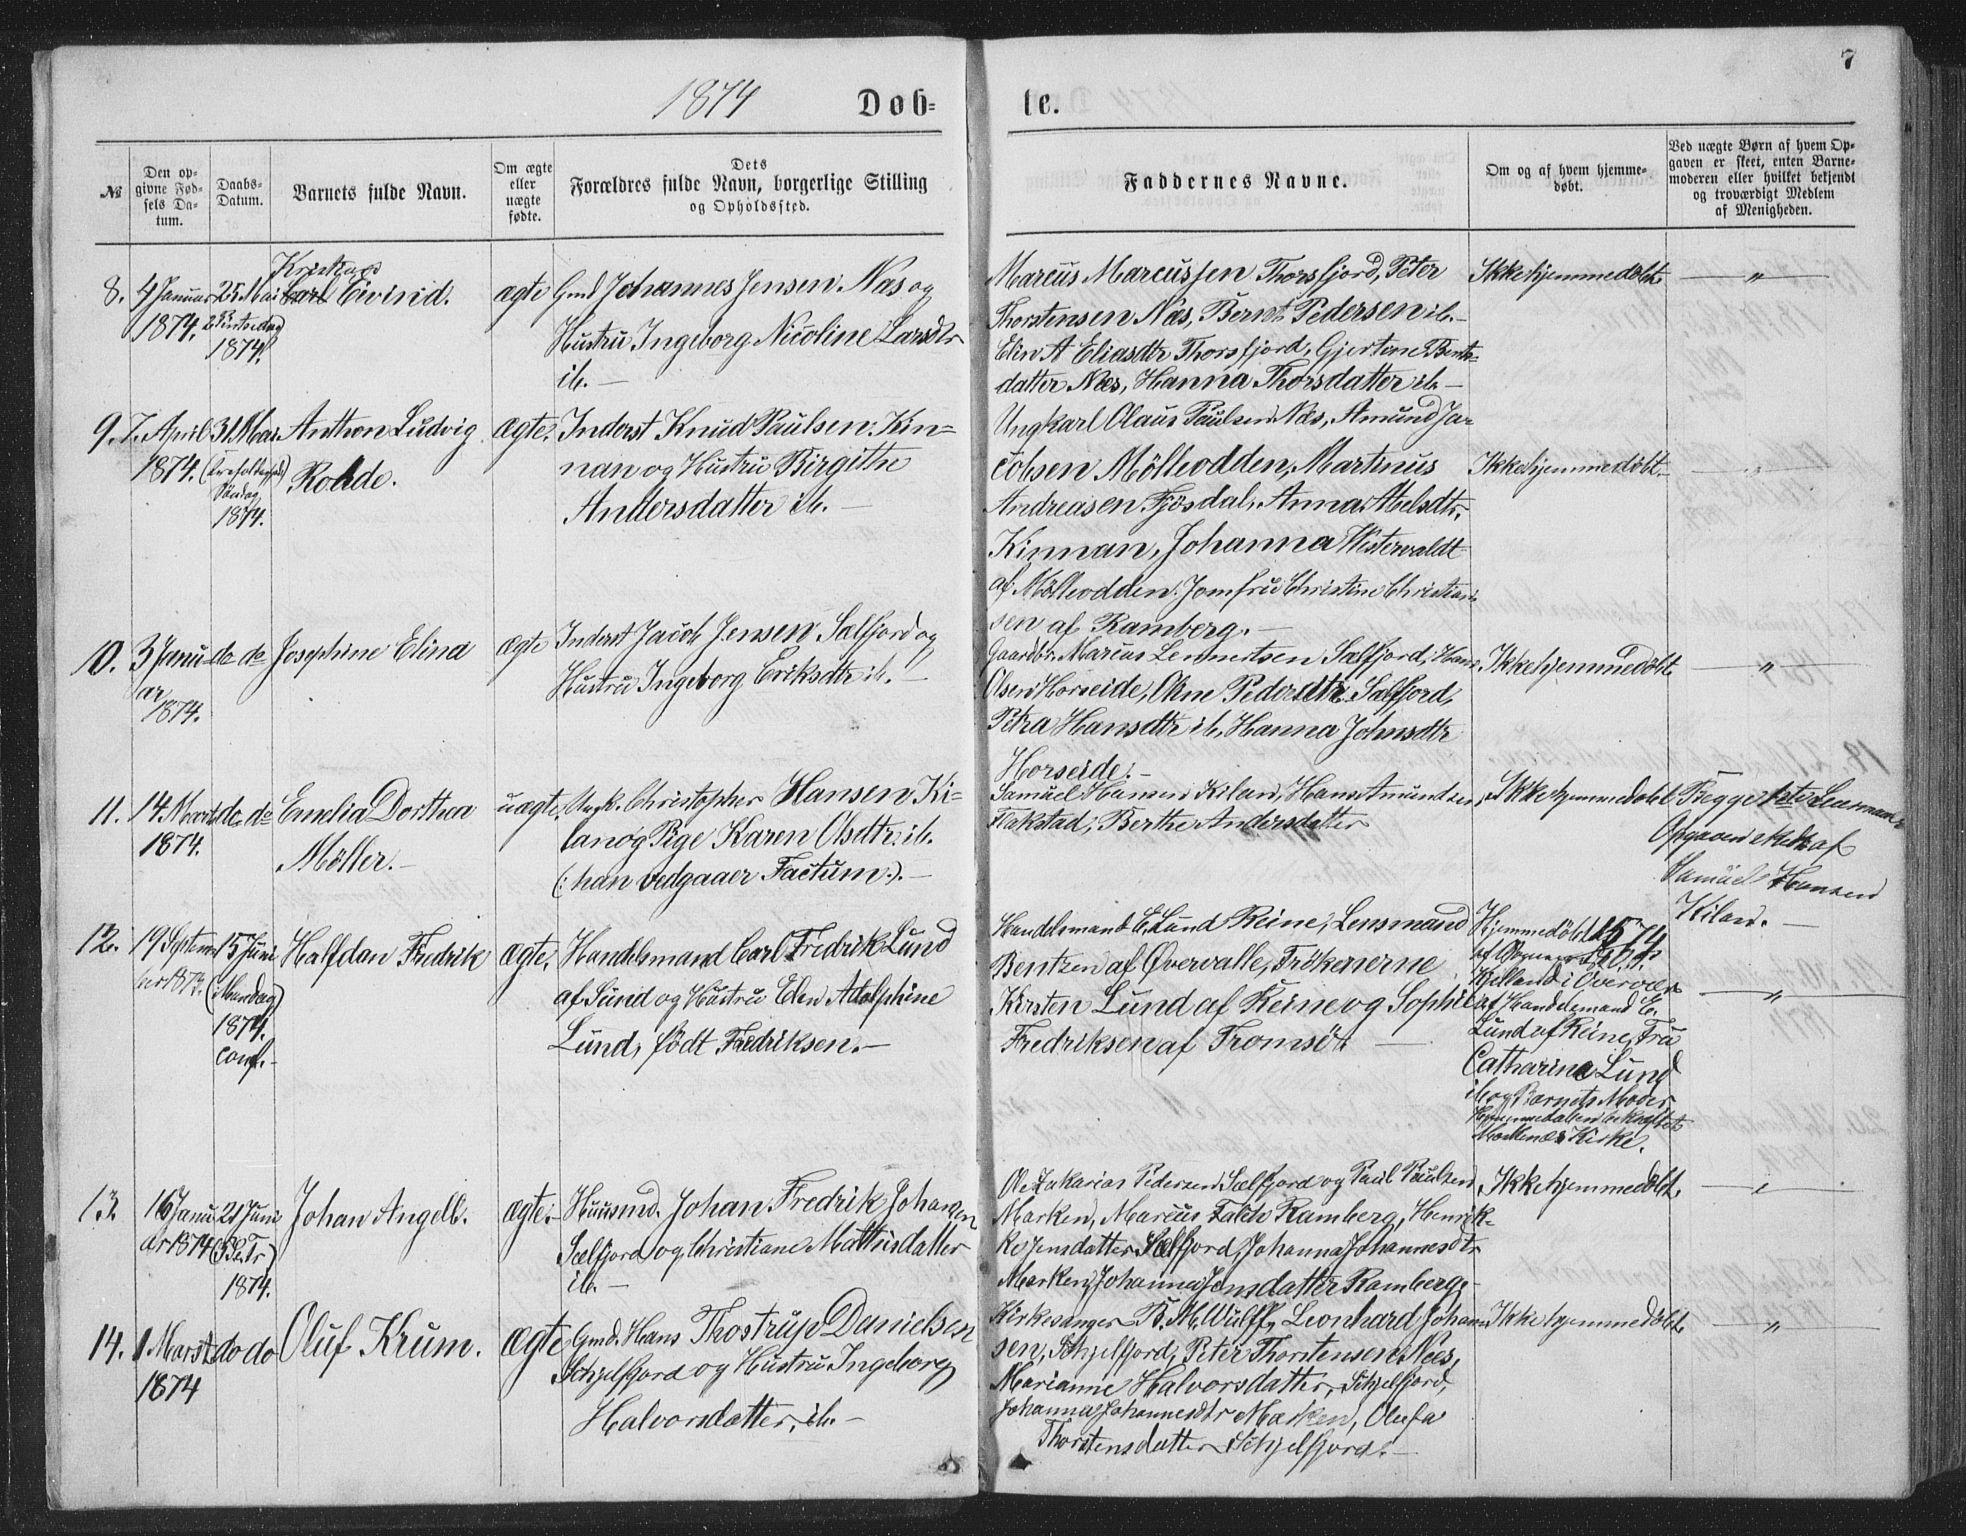 7
1874 Døb- te.
№
Den op-
givne Fød-
sels Da-
tum.
Daabs-
Datum.
Barnets fulde Navn.
Om ægte
eller
uægte
fødte.
Dets
Forældres fulde Navn, borgerlige Stilling
og Opholdssted.
Faddernes Navne.
Om og af hvem hjemme-
døbt.
Ved uægte Børn af hvem Op-
gaven er skeet, enten Barne-
moderen eller hvilket bekjendt
og troværdigt Medlem
af Menigheden.
8.
4 Januar
1874.
25 Mai
1874.
Eivind.
ægte
Gmd Johannes Jensen Næs og
Hustru Ingeborg Nicoline Larsdtr
ib. —
Marcus Marcussen Thorsfjord, Peter
Thorstensen Næs, Bernt Pedersen ib. —
Elen A Eliasdtr Thorsfjord, Gjertine Bents-
datter Næs, Hanna Thorsdatter ib —
Ikke hjemmedøbt
— " —
9.
7. April
1874.
31 Mai
Søndag
1874.
Anthon Ludvig
Rohde.
ægte.
Inderst Knud Paulsen Kin-
nan og Hustru Birgithe
Andersdatter ib. —
Ungkarl Olaus Paulsen Næs, Amund Ja-
cobsen Mölleodden, Martinus
Andreasen Fjösdal, Anna Abelsdtr.
Kinnan, Johanna Westervaldt
af Mölleodden. Jomfru Christine Christian-
sen af Ramberg. —
Ikke hjemmedöbt —
— " —
10.
3 Janu-
ar
1874.
do do
Josephine Elina
ægte
Inderst Jacob Jensen Sælfjord og
Hustru Ingeborg Eriksdtr ib. —
Gaardbr. Marcus Lennertsen Sælfjord, Hans
Olsen Horseide, Ane Pedersdtr Sælfjord,
Petra Hansdtr ib, Hanna Johnsdtr
Horseide. —
Ikke hjemmedöbt
— " —
11.
14 Marts
1874.
do do
Emelia Dorthea
Möller. —
uægte.
Ungk. Christopher Hansen Ki-
lan og Pige Karen Olsdtr. ib.
(: han vedgaaer Factum :). —
Samuel Hansen Kilan, Hans Amundsen
Flakstad, Berthe Andersdatter
Ikke hjemmedøbt
Opgaven skede af
Samuel Hansen
Kilan. —
12.
19 Septem
ber 1873.
15 Juni
(Mandag)
1874.
conf. —
Halfdan Fredrik
ægte.
Handelsmand Carl Fredrik Lund
af Sund og Hustru Elen Adolphine
Lund, født Fredriksen. —
Handelsmand E. Lund Reine, Lensmand
Bentzen af Øvervalle, Frökenerne
Kirsten Lund af Reine og Sophie
Fredriksen af Tromsö. —
Hjemmedöbt
Kjelland i
af Handelsmand E.
Lund af Reine, Fru
Catharina Lund
ib og Barnets Moder
Kirke.
— " —
13.
16 Janu-
ar 1874
21 Juni
1874.
Johan Angell.
ægte. —
Huusmd. Johan Fredrik Johansen
Sælfjord og Christiane Mattisdatter
ib. —
Ole Zakarias Pedersen Sælfjord og Paul Paulsen
Marken, Marcus Falch Ramberg, Henrik-
ke Jensdatter Sælfjord, Johanna Johannesdtr
Marken, Johanna Jensdatter Ramberg. —
Ikke hjemmedøbt.
14.
1 Marts
1874
do do
Oluf Krum.
ægte
Gmd. Hans Thostrup Danielsen
Schjelfjord og Hustru Ingeborg
Halvorsdatter, ib. —
Kirkesanger B. M. Wulff, Leonhard Johan-
sen, Schjelfjord, Peter Thorstensen Næs,
Marianne Halvorsdatter, Schjelfjord,
Johanna Johannesdtr Marken, Olufa
Thorstensdatter Schjelfjord. —
Ikke hjemmedöbt
— " —